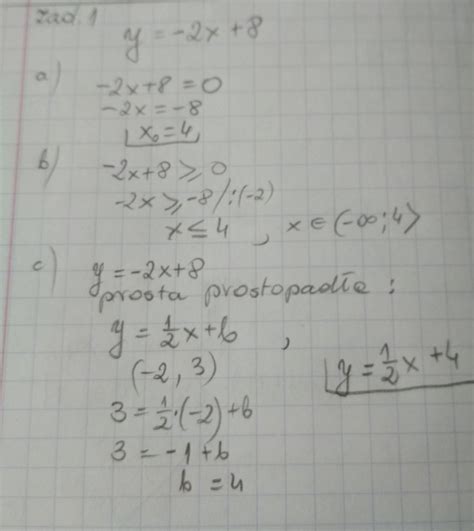 zad. 1
y = -2x + 8
a) -2x+8 = 0
-2x = -8
x₀ = 4
b) -2x+8 ⩾ 0
-2x ⩾ -8 /:(-2)
x ≤ 4 , x ∈ (-∞; 4⟩
c) y = -2x+8
prosta prostopadła :
y = 1/2 x + b ,
(-2, 3)
y = 1/2 x + 4
3 = 1/2 · (-2) + b
3 = -1 + b
b = 4